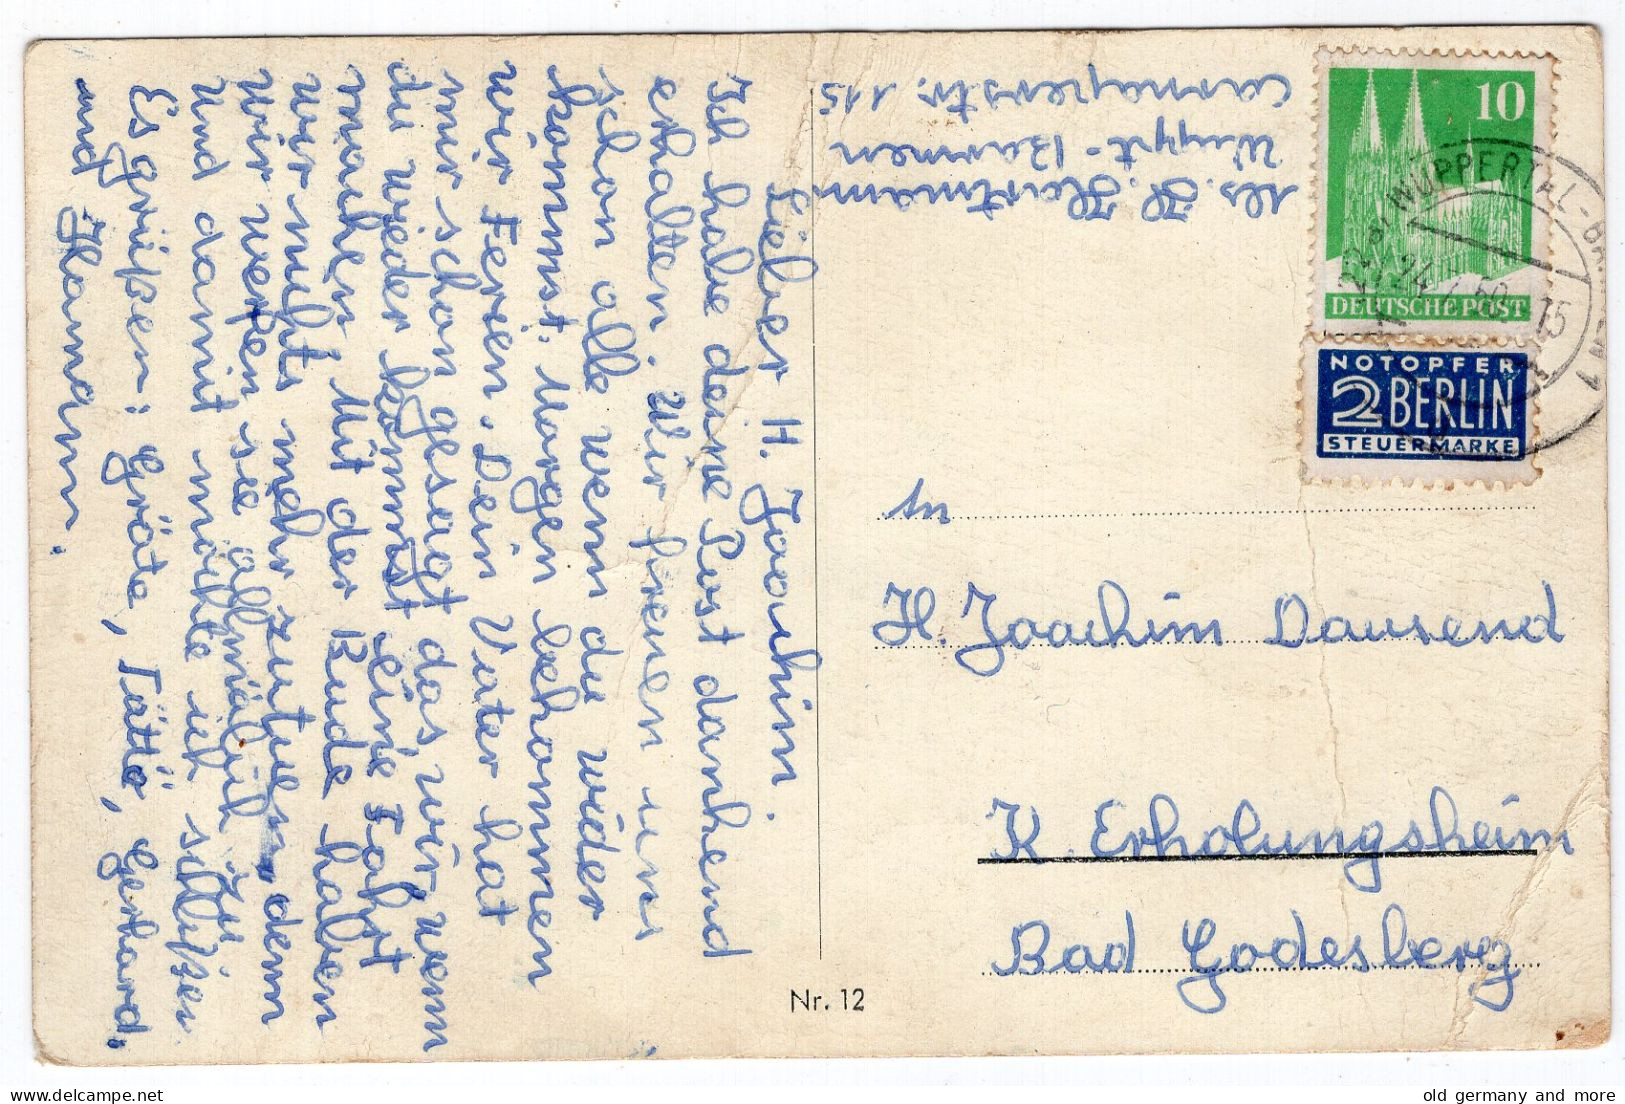 Lieber H. Joachim.
Ich habe deine Post dankend
erhalten. Wir freuen uns
schon alle wenn du wieder
kommst. Morgen bekommen
wir Ferien. Dein Vater hat
mir schon gesagt das wir, wenn
du wieder kommst eine Fahrt
machen. Mit der Bude haben
wir nichts mehr zutuen, denn
wir werfen sie allmälich zu
Und damit möchte ich schlißen
Es grüßen: Gräte, Tätte, Gerhard,
und Hamann.
Abs. H. Hartmann
Wuppt-Barmen
Carnaperstr. 115
10
DEUTSCHE POST
NOTOPFER
2 BERLIN
STEUERMARKE
WUPPERTAL-BA
An
H. Joachim Dausend
K. Erholungsheim
Bad Godesberg
Nr. 12
old germany and more